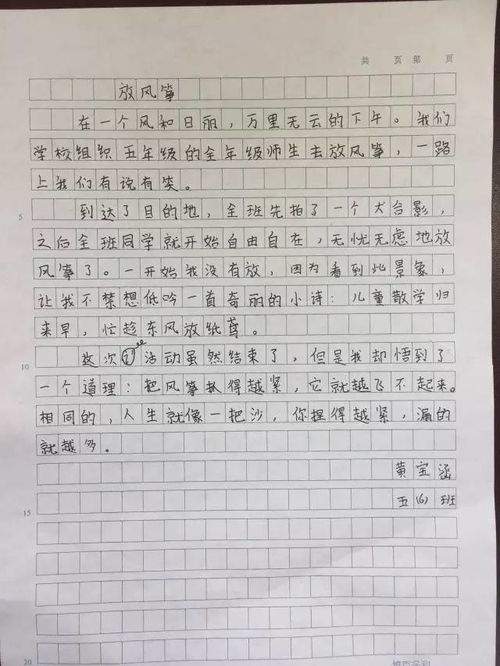 共 页 第 页
放风筝
在一个风和日丽，万里无云的下午。我们
学校组织五年级的全年级师生去放风筝，一路
上我们有说有笑。
5
到达了目的地，全班先拍了一个大合影，
之后全班同学就开始自由自在，无忧无虑地放
风筝了。一开始我没有放，因为看到此景象，
让我不禁想低吟一首奇丽的小诗：儿童散学归
来早，忙趁东风放纸鸢。
10
这次活动虽然结束了，但是我却悟到了
一个道理：把风筝抓得越紧，它就越飞不起来。
相同的，人生就像一把沙，你握得越紧，漏的
就越多。
黄宝涵
15
五（6）班
20